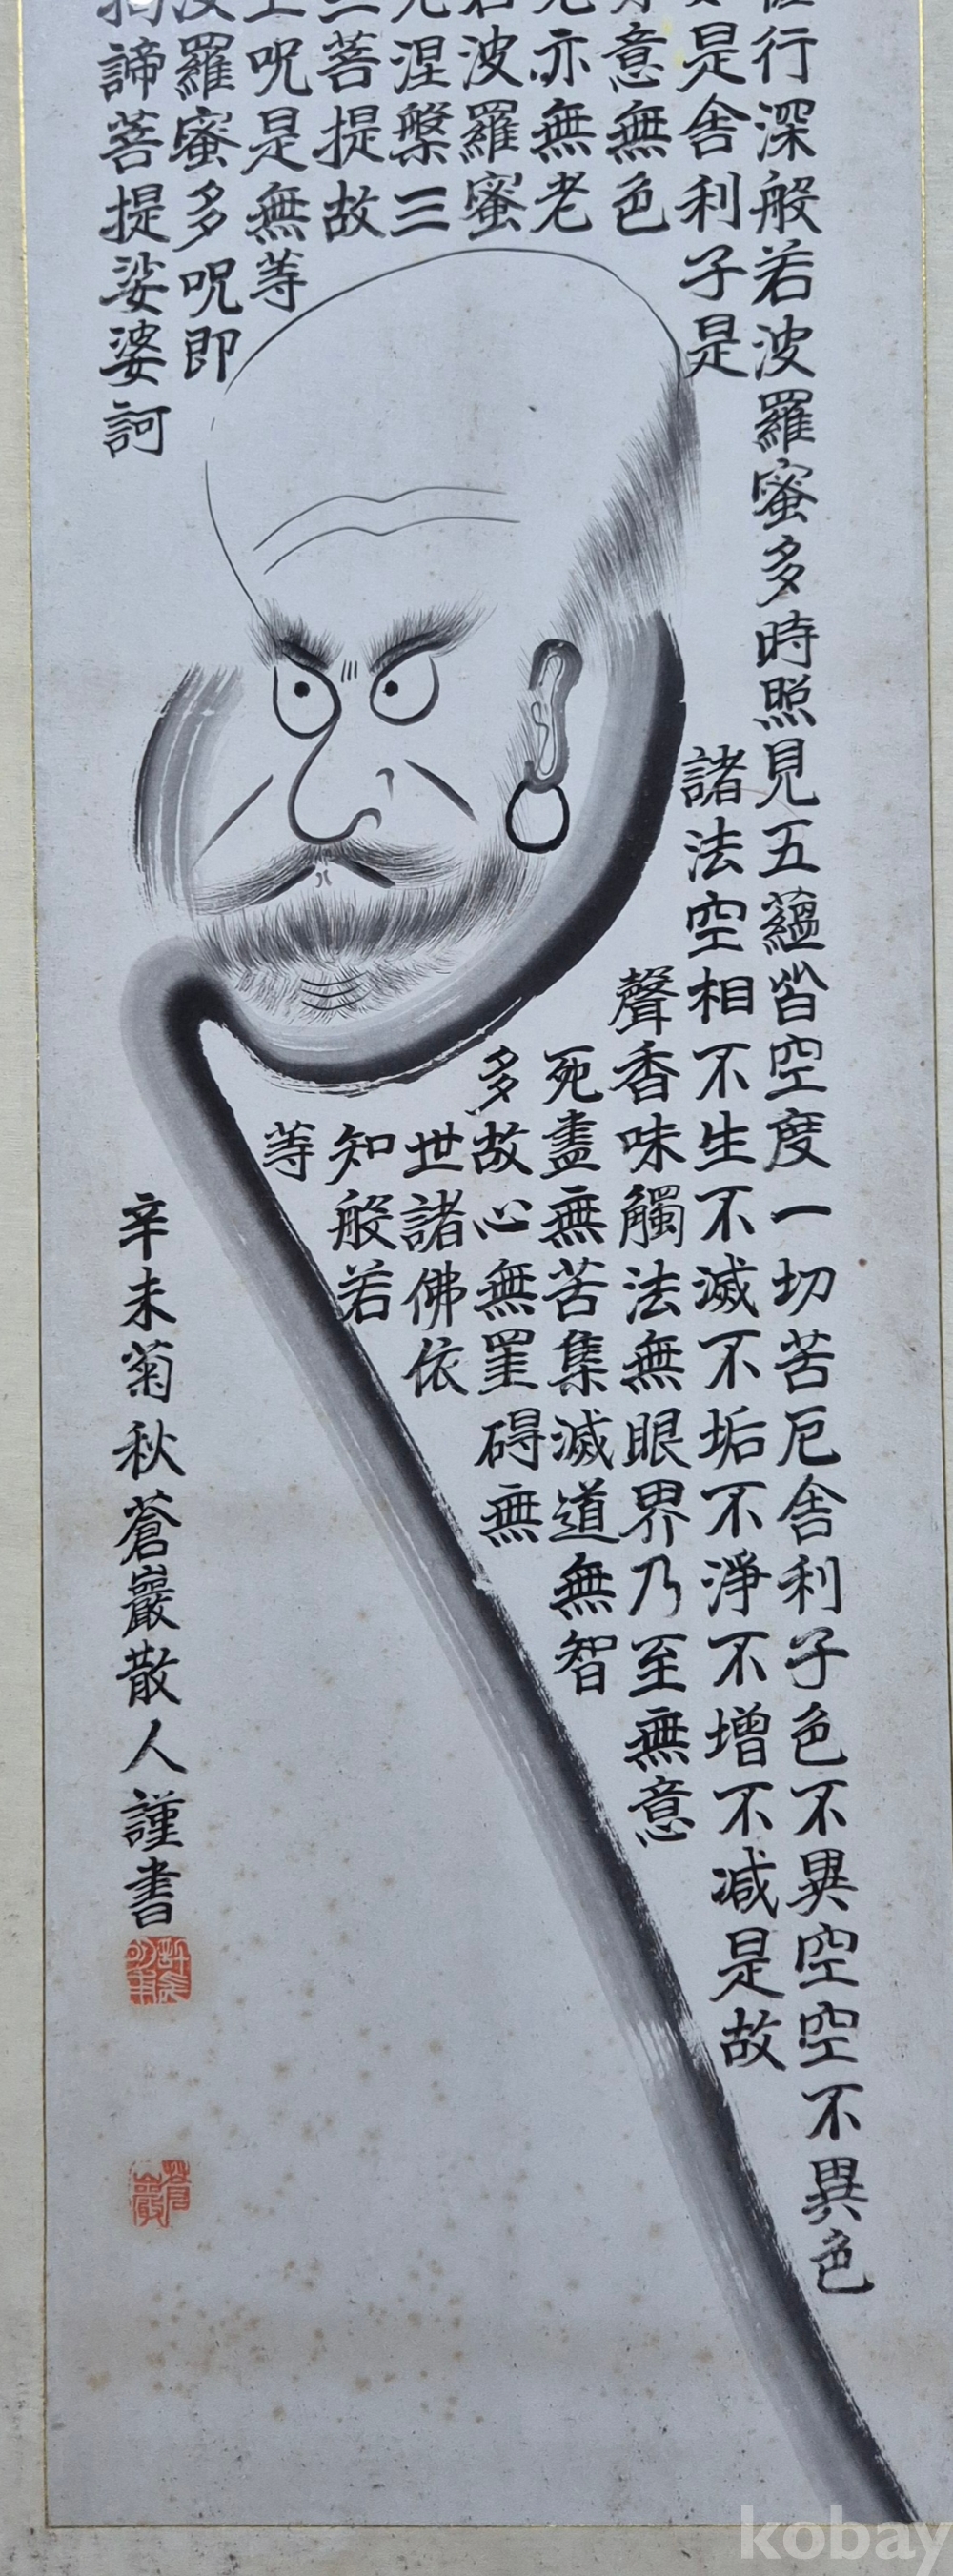 行深般若波羅蜜多時照見五蘊皆空度一切苦厄舍利子色不異空空不異色
是舍利子是諸法空相不生不滅不垢不淨不增不減是故
意無色聲香味觸法無眼界乃至無意
亦無老死盡無苦集滅道無智
波羅蜜多故心無罣碍無
涅槃三世諸佛依
菩提故知般若
呪是無等等
羅蜜多呪即
諦菩提娑婆訶
辛未菊秋蒼巖散人謹書
蒼巖
kobay